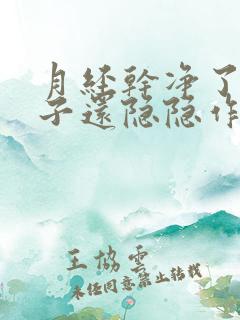 月经幹净了
子還隐隐作
王協雲
未经同意禁止转载